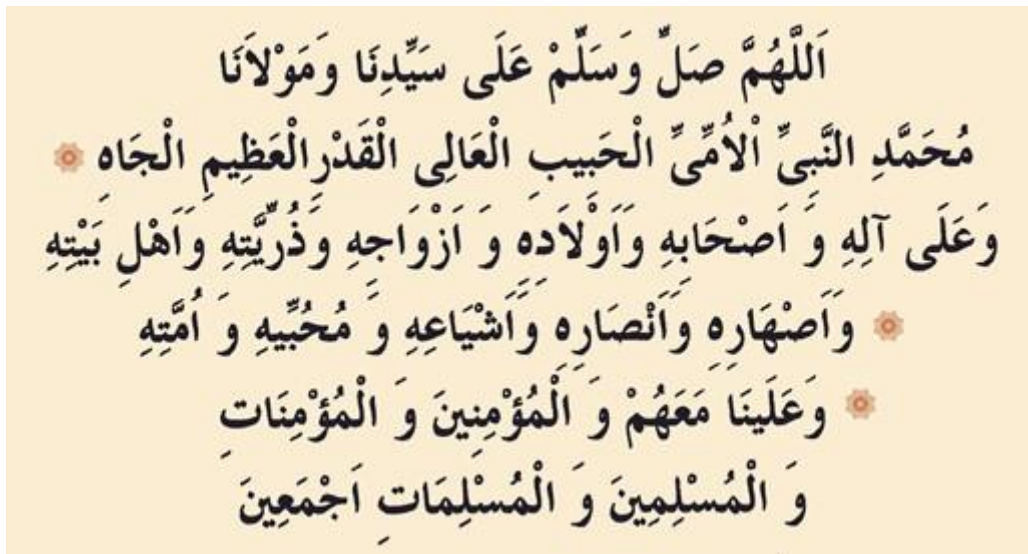 اَللَّهُمَّ صَلِّ وَسَلِّمْ عَلَى سَيِّدِنَا وَمَوْلاَنَا
مُحَمَّدِ النَّبِىِّ اْلاُمِّىِّ الْحَبِيبِ الْعَالِى الْقَدْرِالْعَظِيمِ الْجَاهِ
وَعَلَى آلِهِ وَ اَصْحَابِهِ وَاَوْلَادِهِ وَ اَزْوَاجِهِ وَذُرِّيَّتِهِ وَاَهْلِ بَيْتِهِ
وَاَصْهَارِهِ وَاَنْصَارِهِ وَاَشْيَاعِهِ وَ مُحُبِّيهِ وَ اُمَّتِهِ
وَعَلَينَا مَعَهُمْ وَ الْمُؤْمِنِينَ وَ الْمُؤْمِنَاتِ
وَ الْمُسْلِمِينَ وَ الْمُسْلِمَاتِ اَجْمَعِينَ